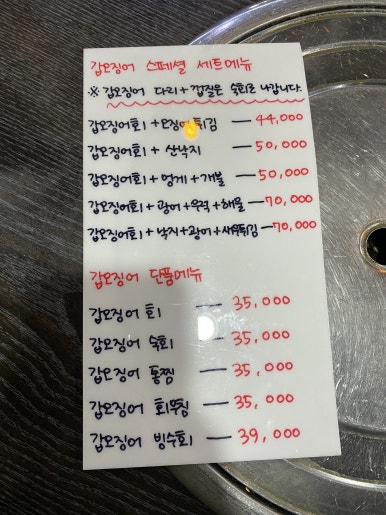 갑오징어 스페셜 세트메뉴
※ 갑오징어 다리+껍질은 숙회로 나갑니다.
갑오징어회+오징어튀김 — 44,000
갑오징어회+산낙지 — 50,000
갑오징어회+멍게+개불 — 50,000
갑오징어회+광어+우럭+해물 — 70,000
갑오징어회+낙지+광어+새우튀김 — 70,000
갑오징어 단품메뉴
갑오징어 회 — 35,000
갑오징어 숙회 — 35,000
갑오징어 통찜 — 35,000
갑오징어 회무침 — 35,000
갑오징어 빙수회 — 39,000